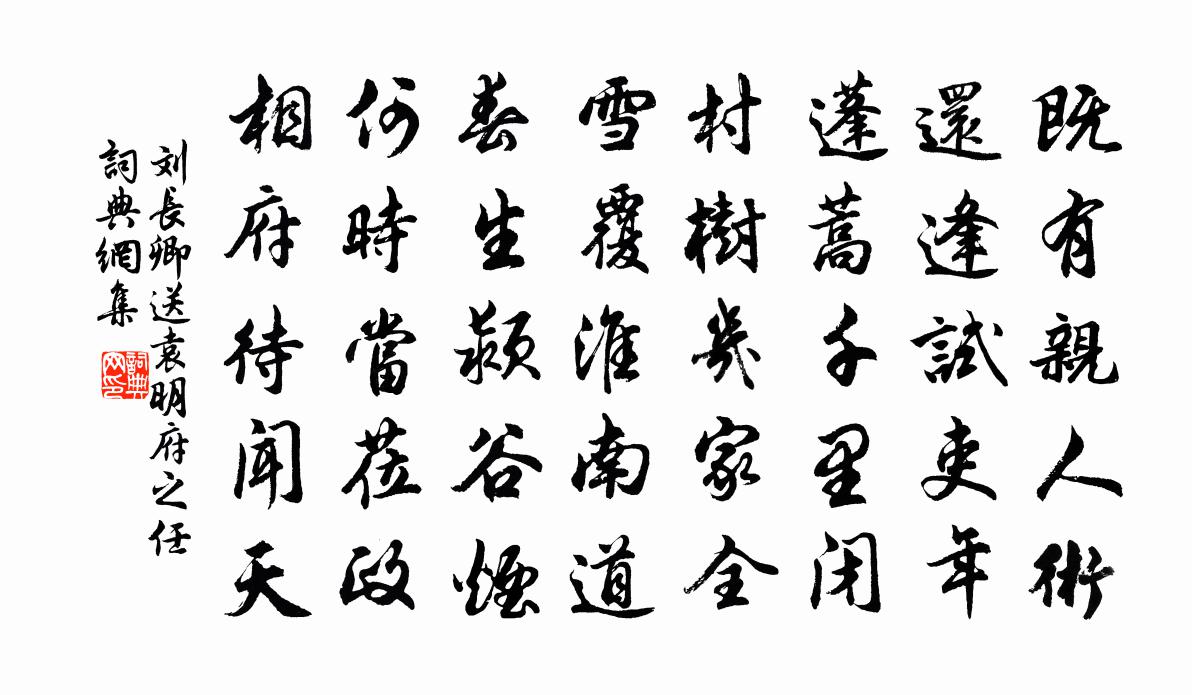 既有親人術
還逢試吏年
蓬蒿千里閉
村樹幾家全
雪覆淮南道
春生潁谷煙
何時當莅政
相府待聞天
刘長卿送袁明府之任
詞典網集
詞典网印